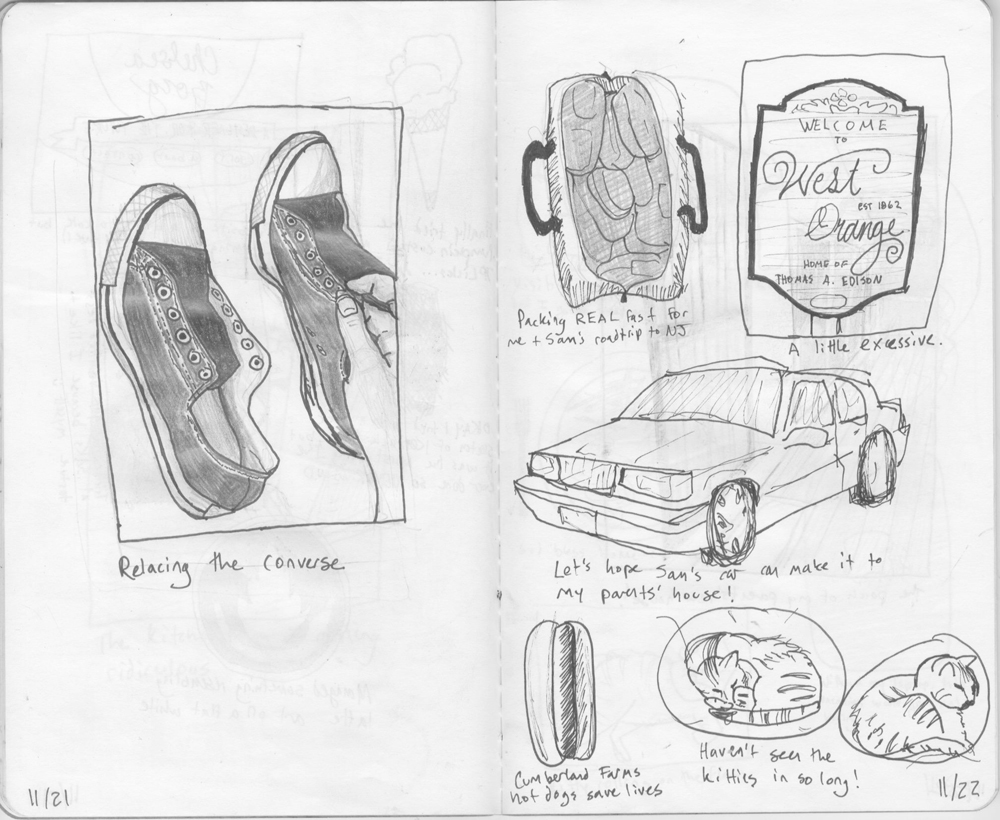 Relacing the Converse
11/21
Packing REAL fast for
me + Sam's roadtrip to NJ
WELCOME
TO
West
EST 1862
Orange
HOME OF
THOMAS A. EDISON
A little excessive.
Let's hope Sam's car can make it to
my parents' house!
Cumberland Farms
hot dogs save lives
Haven't seen the
kitties in so long!
11/22